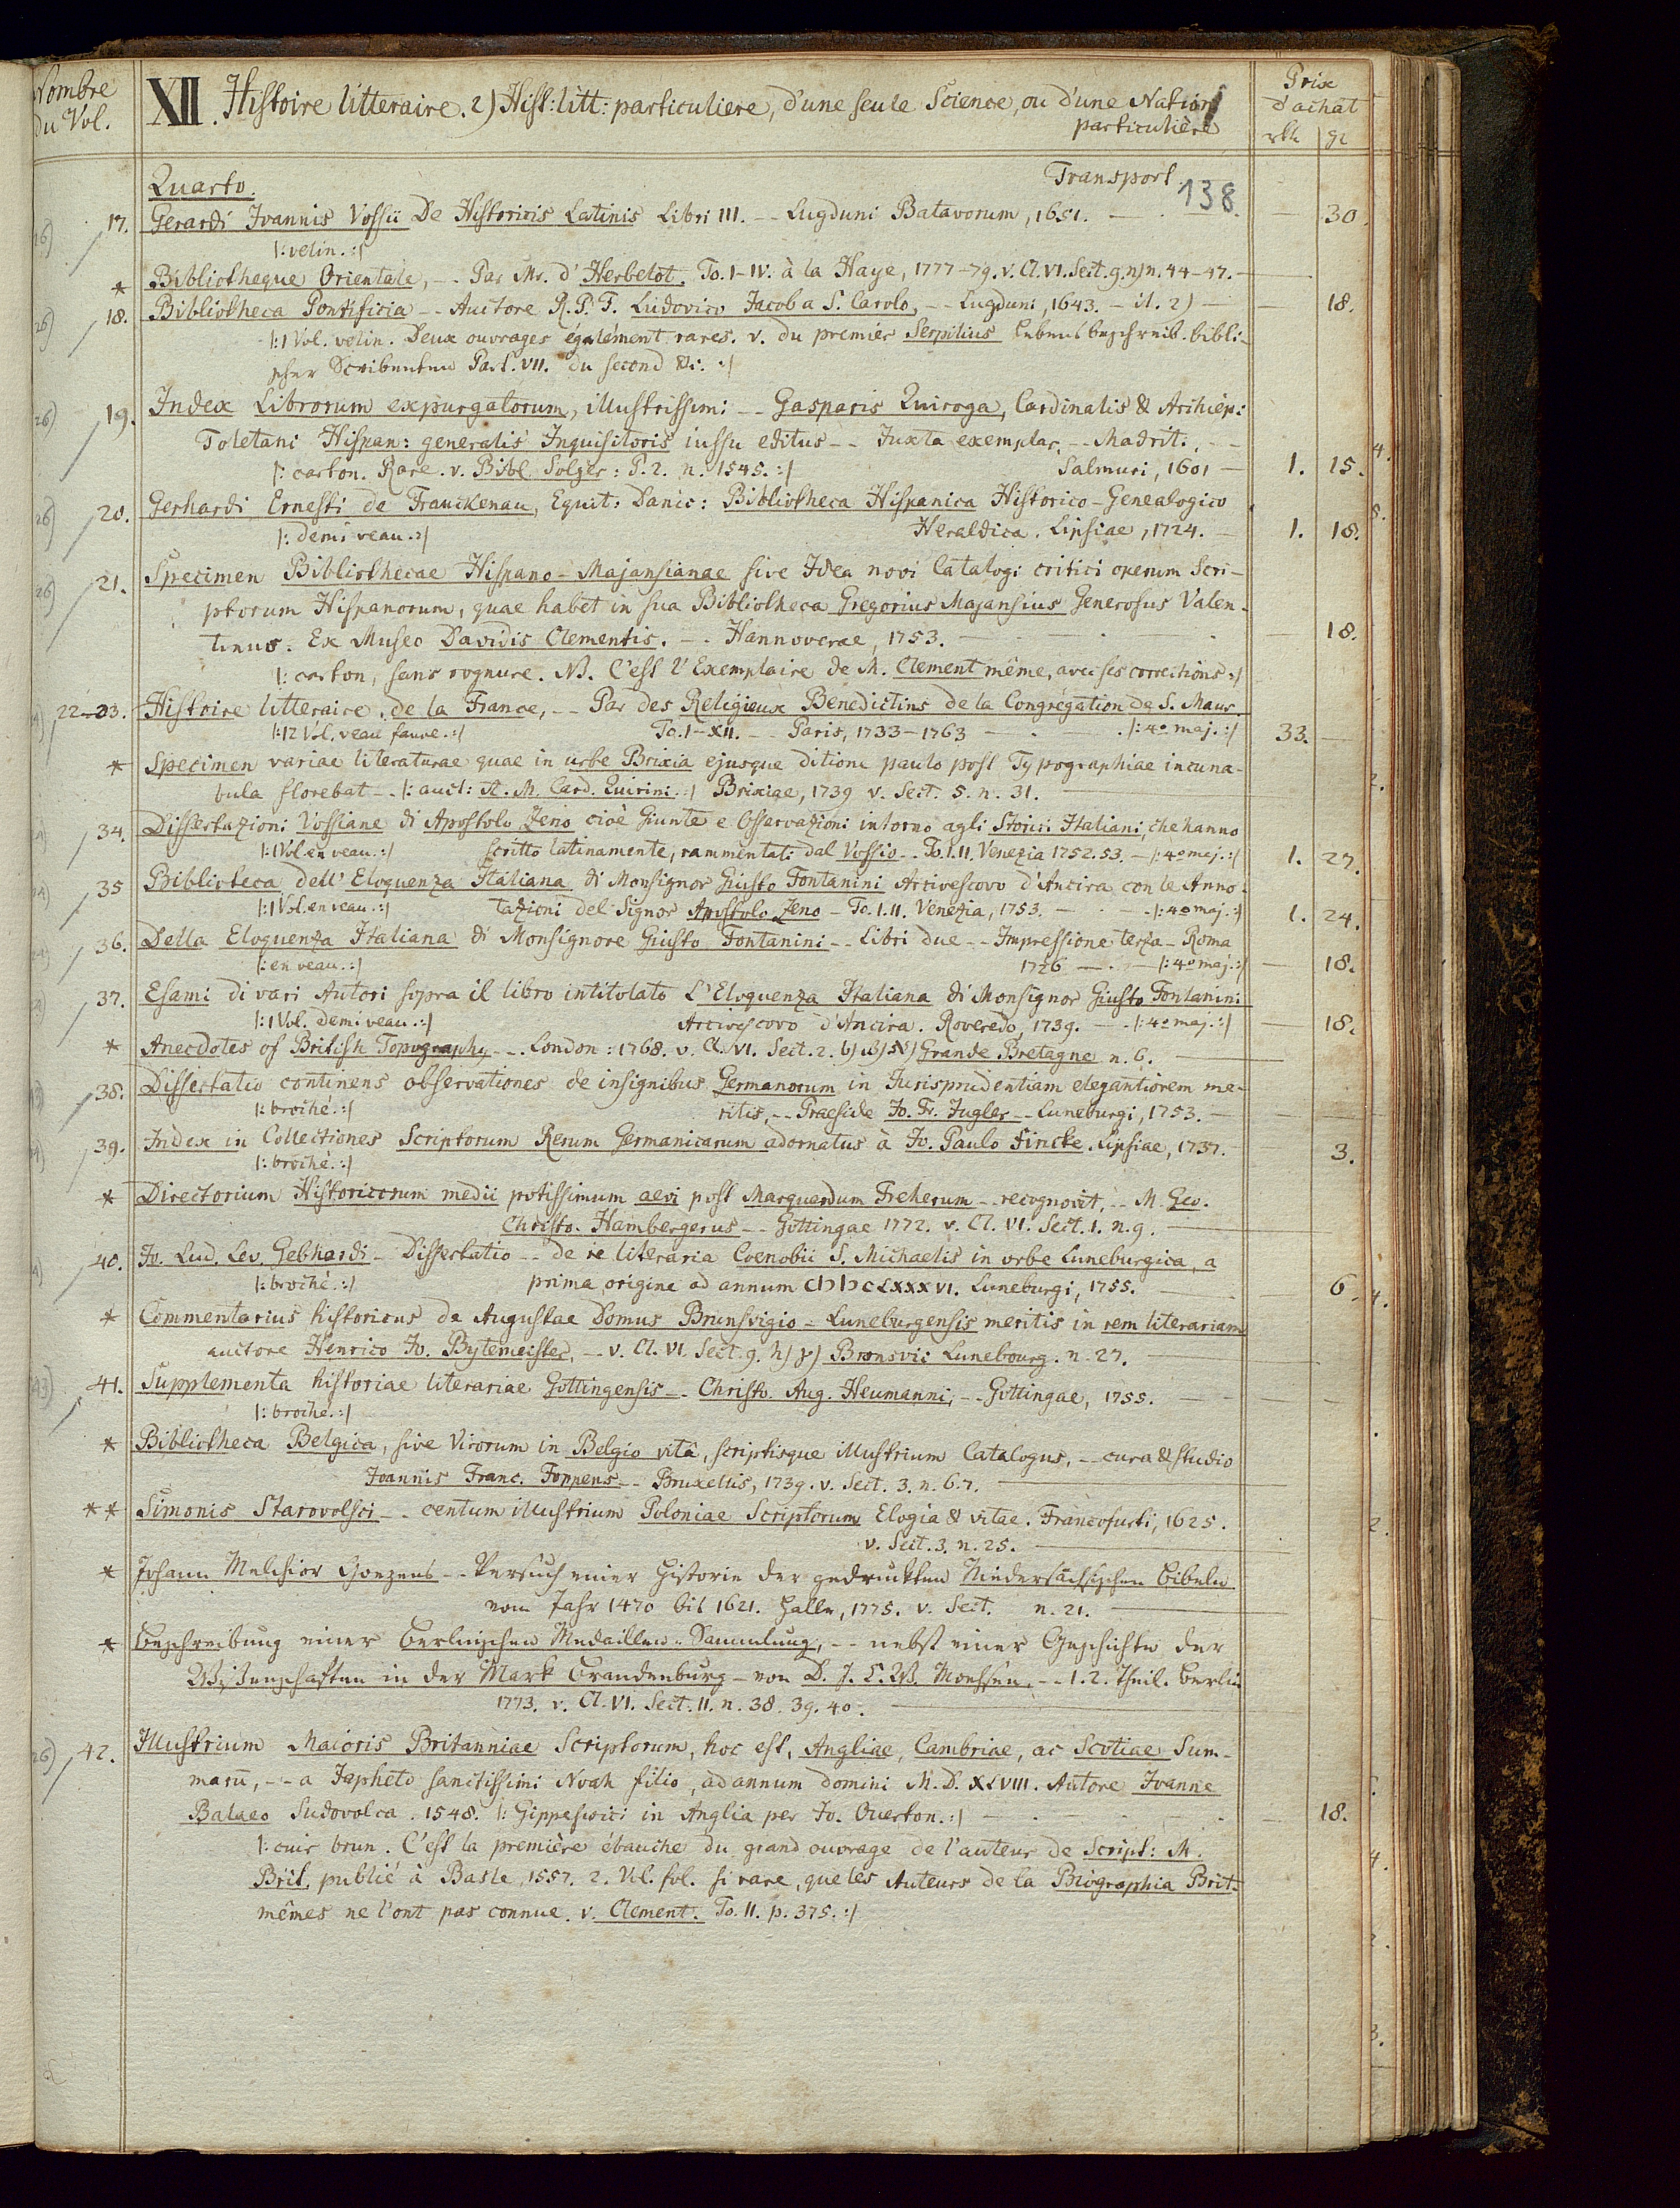 Nombre du Vol.
XII. Histoire litteraire. 2) Hist: litt: particuliere, d'une seule Science, ou d'une Nation
particulière
Prix d'achat
rth gr
Quarto. Transport
138.
17. Gerardi Joannis Vossii De Historicis Latinis Libri III. -- Lugduni Batavorum, 1651. — 30.
|: velin. :|
* Bibliotheque Orientale, -- Par Mr. d'Herbelot. To. I-IV. à la Haye, 1777-79. v. Cl. VI. Sect. 9. n) n. 44-47.
18. Bibliotheca Pontificia -- Auctore R. P. F. Ludovico Jacob a S. Carolo, -- Lugduni, 1643. - it. 2) — 18.
|: 1 Vol. velin. Deux ouvrages également rares. v. du premier Serpilius Lebensbeschreib. bibli-
scher Scribenten Part. VII. du second &c. :|
19. Index Librorum expurgatorum, illustrissimi -- Gasparis Quiroga, Cardinalis & Archiep:
Toletani Hispan: generalis Inquisitoris iussu editus -- Juxta exemplar -- Madrit. --
|: carton. Rare. v. Bibl. Solger: P. 2. n. 1545. :| Salmuri, 1601 — 1. 15.
20. Gerhardi Ernesti de Franckenau, Equit: Danic: Bibliotheca Hispanica Historico-Genealogico
|: demi veau. :| Heraldica. Lipsiae, 1724. — 1. 18.
21. Specimen Bibliothecae Hispano-Majansianae sive Idea novi Catalogi critici operum Scri-
ptorum Hispanorum, quae habet in sua Bibliotheca Gregorius Majansius Generosus Valen-
tinus. Ex Museo Davidis Clementis. -- Hannoverae, 1753. — 18.
|: carton, sans rognure. NB. C'est l'Exemplaire de M. Clement même, avec ses corrections :|
22-33. Histoire litteraire de la France, -- Par des Religieux Benedictins de la Congrégation de S. Maur.
|: 12 Vol. veau fauve. :| To. I-XII. -- Paris, 1733-1763 — |: 4° maj. :| 33. —
* Specimen variae literaturae quae in urbe Brixia ejusque ditione paulo post Typographiae incuna-
bula florebat -- |: auct: A. M. Card. Quirini. :| Brixiae, 1739 v. Sect. 5. n. 31.
34. Dissertazioni Vossiane di Apostolo Zeno cioè Giunte e Osservazioni intorno agli Storici Italiani, che hanno
|: 1 Vol. en veau. :| scritto latinamente, rammentati dal Vossio -- To. I. II. Venezia 1752. 53. — |: 4° maj. :| 1. 27.
35 Biblioteca dell' Eloquenza Italiana di Monsignor Giusto Fontanini Arcivescovo d'Ancira con le Anno-
|: 1 Vol. en veau. :| tazioni del Signor Apostolo Zeno - To. I. II. Venezia, 1753. — |: 4° maj. :| 1. 24.
36. Della Eloquenza Italiana di Monsignore Giusto Fontanini -- Libri due -- Impressione terza - Roma
|: en veau. :| 1726 — |: 4° maj. :| — 18.
37. Esami di vari Autori sopra il libro intitolato L'Eloquenza Italiana di Monsignor Giusto Fontanini
|: 1 Vol. demi veau. :| Arcivescovo d'Ancira. Roveredo, 1739. — |: 4° maj. :| — 18.
* Anecdotes of British Topography -- London: 1768. v. Cl. VI. Sect. 2. b) Grande Bretagne n. 6.
38. Dissertatio continens observationes de insignibus Germanorum in Jurisprudentiam elegantiorem me-
|: broché. :| ritis, -- Praeside Jo. Fr. Jugler -- Luneburgi, 1753. —
39. Index in Collectiones Scriptorum Rerum Germanicarum adornatus à Jo. Paulo Fincke. Lipsiae, 1737. — 3.
|: broché. :|
* Directorium Historicorum medii potissimum aevi post Marquardum Freherum -- recognovit, -- M. Geo.
Christo. Hambergerus -- Gottingae 1772. v. Cl. VI. Sect. 1. n. 9.
40. Jo. Lud. Lev. Gebhardi - Dissertatio -- de re literaria Coenobii S. Michaelis in urbe Luneburgica, a
|: broché. :| prima origine ad annum CIƆ IƆ CLXXXVI. Luneburgi, 1755. — 6.
* Commentarius historicus de Augustae Domus Brunsvigio-Luneburgensis meritis in rem literariam
auctore Henrico Jo. Bytemeister, -- v. Cl. VI. Sect. 9. h) γ) Bronsvic Lunebourg. n. 27.
41. Supplementa historiae literariae Gottingensis -- Christo. Aug. Heumanni, -- Gottingae, 1755. —
|: broché. :|
* Bibliotheca Belgica, sive Virorum in Belgio vitâ, scriptisque illustrium Catalogus, -- cura & studio
Joannis Franc. Foppens -- Bruxellis, 1739. v. Sect. 3. n. 67.
** Simonis Starovolsci -- centum illustrium Poloniae Scriptorum Elogia & vitae. Francofurti, 1625.
v. Sect. 3. n. 25.
* Johann Melchior Goezens -- Versuch einer Historie der gedruckten Niedersächsischen Bibeln
vom Jahr 1470 bis 1621. Halle, 1775. v. Sect. n. 21.
* Beschreibung einer Berlinischen Medaillen-Sammlung, -- nebst einer Geschichte der
Wissenschaften in der Mark Brandenburg - von D. J. C. W. Moehsen. -- 1. 2. Theil. Berlin
1773. v. Cl. VI. Sect. 11. n. 38. 39. 40.
42. Illustrium Maioris Britanniae Scriptorum, hoc est, Angliae, Cambriae, ac Scotiae Sum-
mariū, -- a Japheto sanctissimi Noah filio, ad annum domini M. D. XLVIII. Autore Joanne
Balaeo Sudovolca. 1548. |: Gippeswici in Anglia per Jo. Overton. :| — 18.
|: cuir brun. C'est la première ébauche du grand ouvrage de l'auteur de Script: M.
Brit. publié à Basle, 1557. 2. Vol. fol. si rare, que les Auteurs de la Biographia Brit.
mêmes ne l'ont pas connue. v. Clement. To. II. p. 375. :|